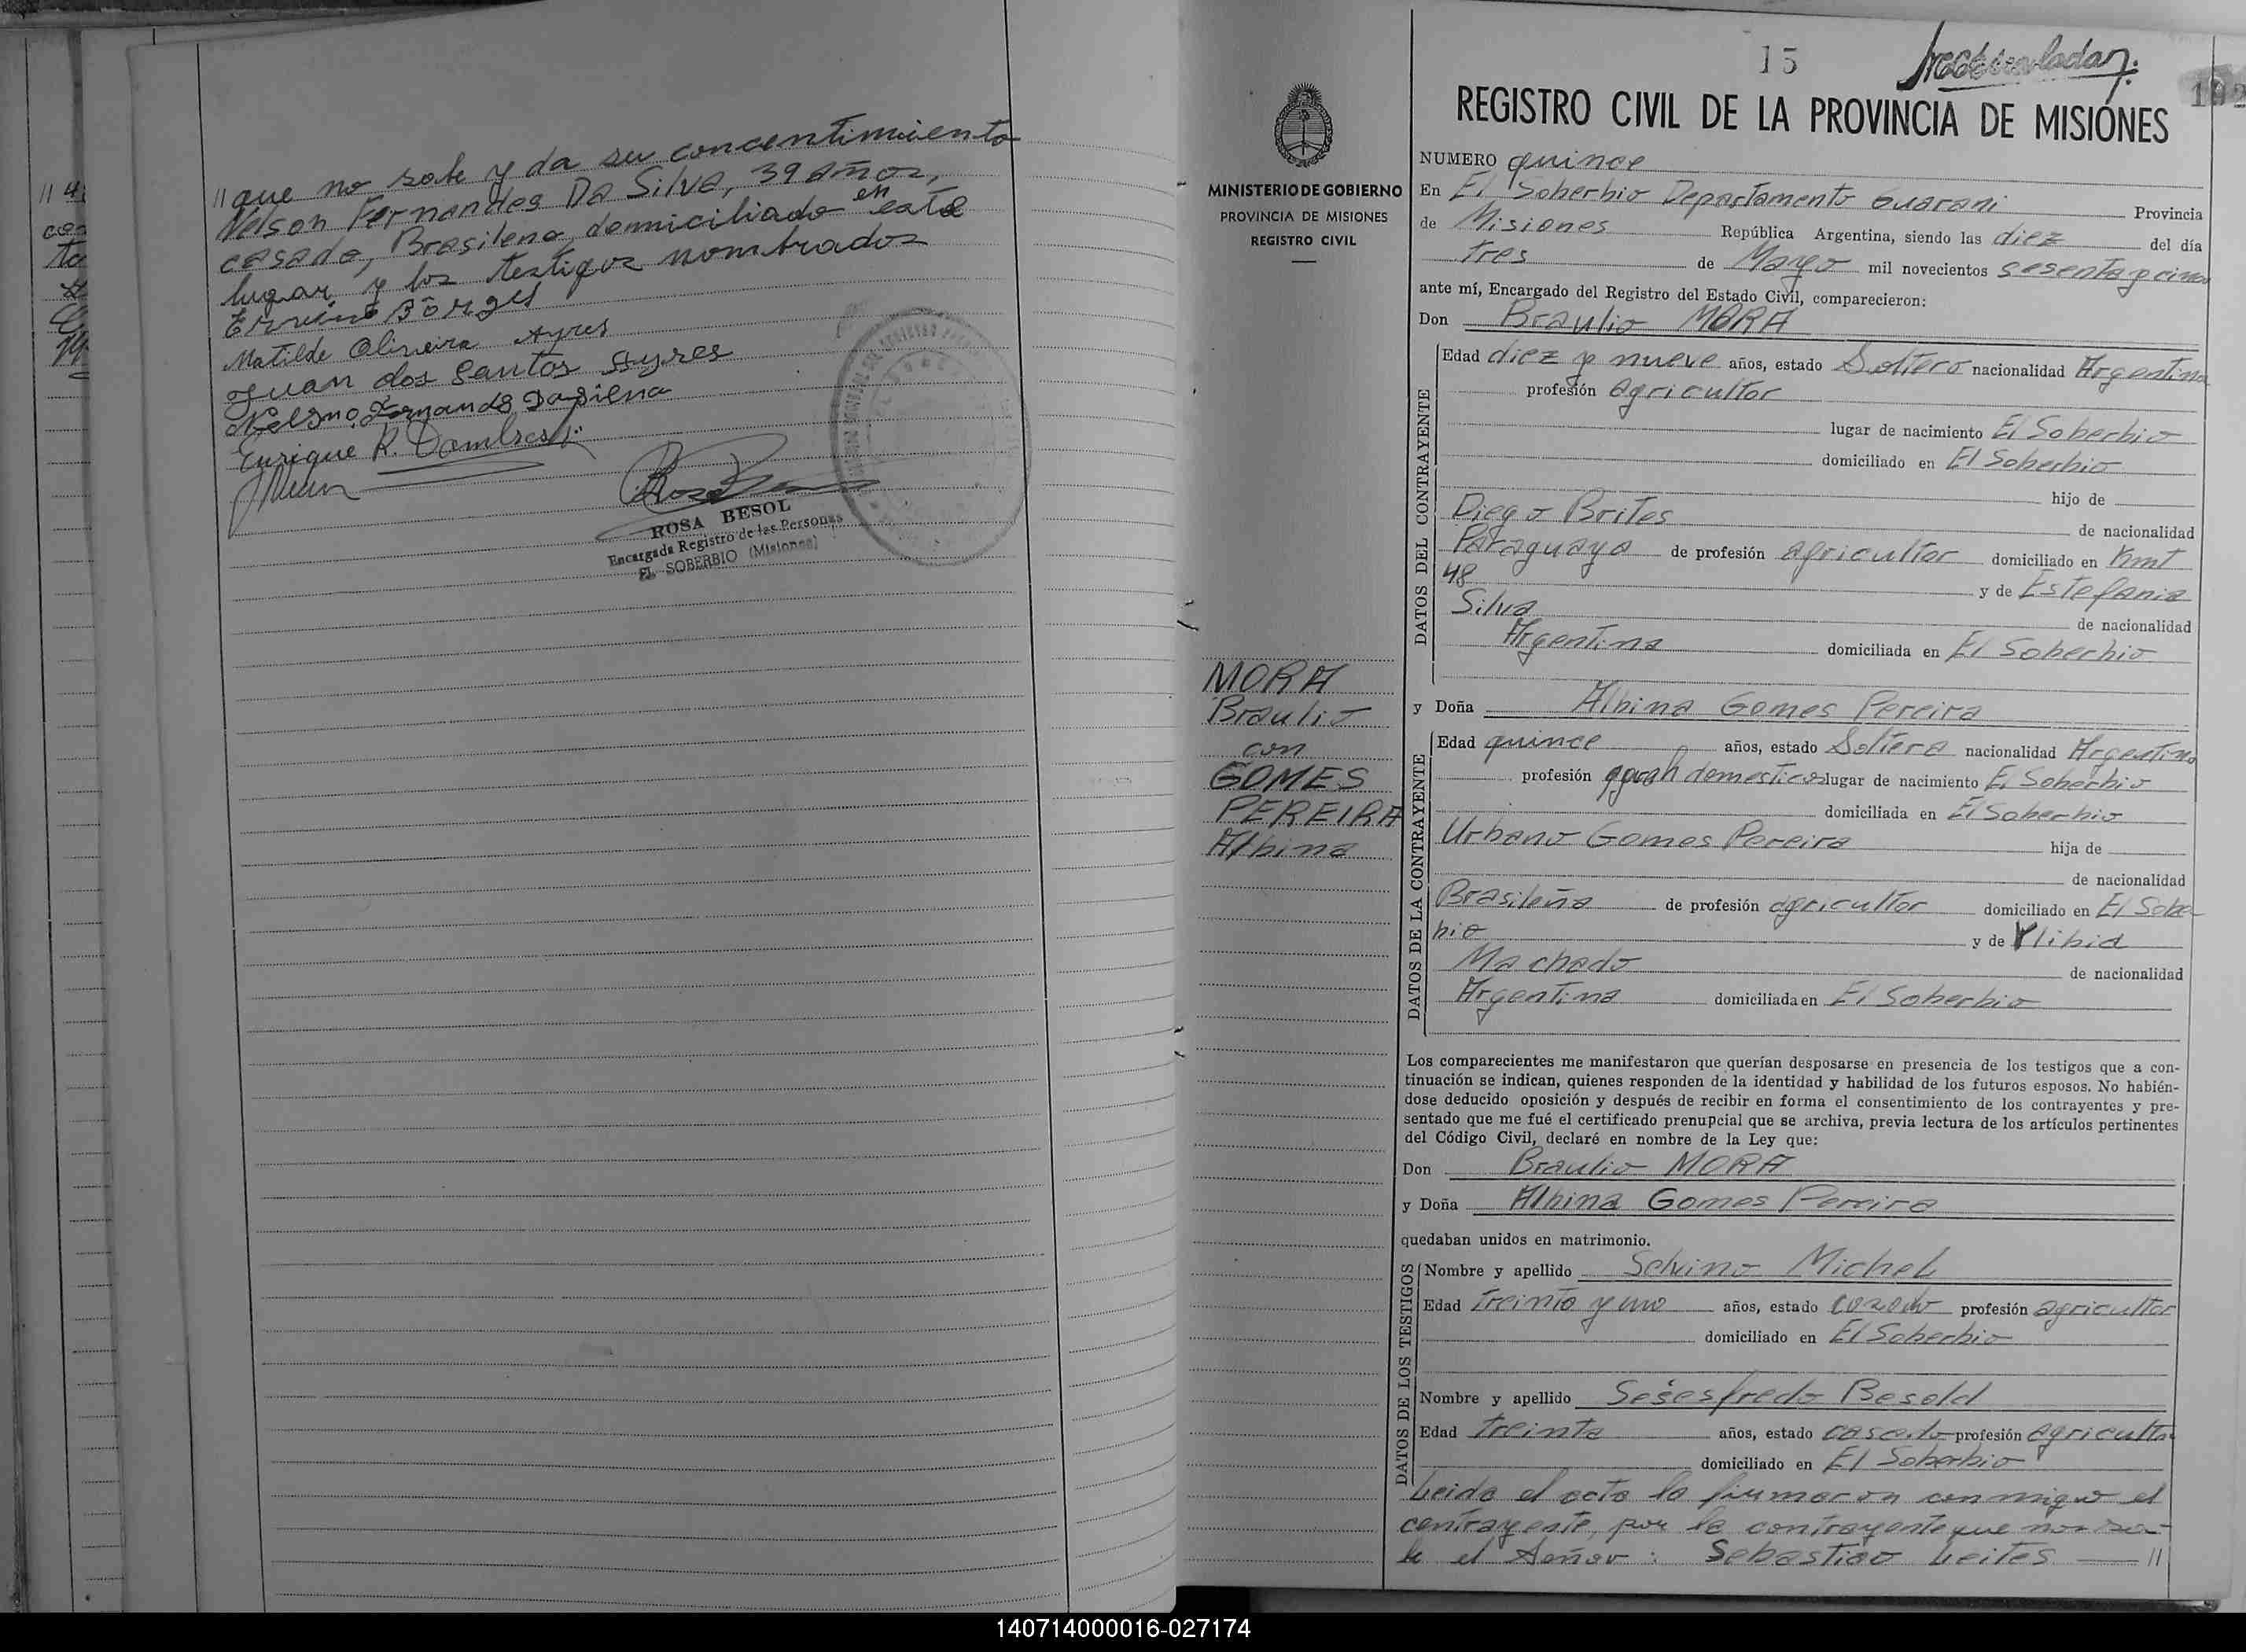 // que no sabe y da su concentimiento
Nelson Fernandes Da Silva, 39 años,
casado, Brasileno, domiciliado en este
lugar y los testigos nombrados
Borges
Matilde Oliveira Ayres
Juan dos Santos Ayres
Enrique R.
ROSA BESOL
Encargada Registro de las Personas
EL SOBERBIO (Misiones)
15
102
REGISTRO CIVIL DE LA PROVINCIA DE MISIONES
MINISTERIO DE GOBIERNO
PROVINCIA DE MISIONES
REGISTRO CIVIL
MORA
Braulio
con
GOMES
PEREIRA
Albina
NUMERO quince
En El Soberbio Departamento Guarani Provincia
de Misiones República Argentina, siendo las diez del día
tres de Mayo mil novecientos sesenta y cinco
ante mí, Encargado del Registro del Estado Civil, comparecieron:
Don Braulio MORA
DATOS DEL CONTRAYENTE
Edad diez y nueve años, estado Soltero nacionalidad Argentina
profesión agricultor
lugar de nacimiento El Soberbio
domiciliado en El Soberbio
hijo de
Diego Brites
de nacionalidad
Paraguaya de profesión agricultor domiciliado en Kmt
48 y de Estefania
Silva
de nacionalidad
Argentina domiciliada en El Soberbio
y Doña Albina Gomes Pereira
DATOS DE LA CONTRAYENTE
Edad quince años, estado Soltera nacionalidad Argentina
profesión domesticos lugar de nacimiento El Soberbio
domiciliada en El Soberbio
Urbano Gomes Pereira hija de
de nacionalidad
Brasileña de profesión agricultor domiciliado en El Sober
bio y de
Machado
de nacionalidad
Argentina domiciliada en El Soberbio
Los comparecientes me manifestaron que querían desposarse en presencia de los testigos que a con-
tinuación se indican, quienes responden de la identidad y habilidad de los futuros esposos. No habién-
dose deducido oposición y después de recibir en forma el consentimiento de los contrayentes y pre-
sentado que me fué el certificado prenupcial que se archiva, previa lectura de los artículos pertinentes
del Código Civil, declaré en nombre de la Ley que:
Don Braulio MORA
y Doña Albina Gomes Pereira
quedaban unidos en matrimonio.
DATOS DE LOS TESTIGOS
Nombre y apellido Selvino Michel
Edad treinta y uno años, estado casado profesión agricultor
domiciliado en El Soberbio
Nombre y apellido Sesesfredo Besold
Edad treinta años, estado casado profesión agricultor
domiciliado en El Soberbio
Leida el acta la firmaron conmigo el
contrayente, por la contrayente que no sa-
be el Señor: Sebastiao Leites //
140714000016-027174